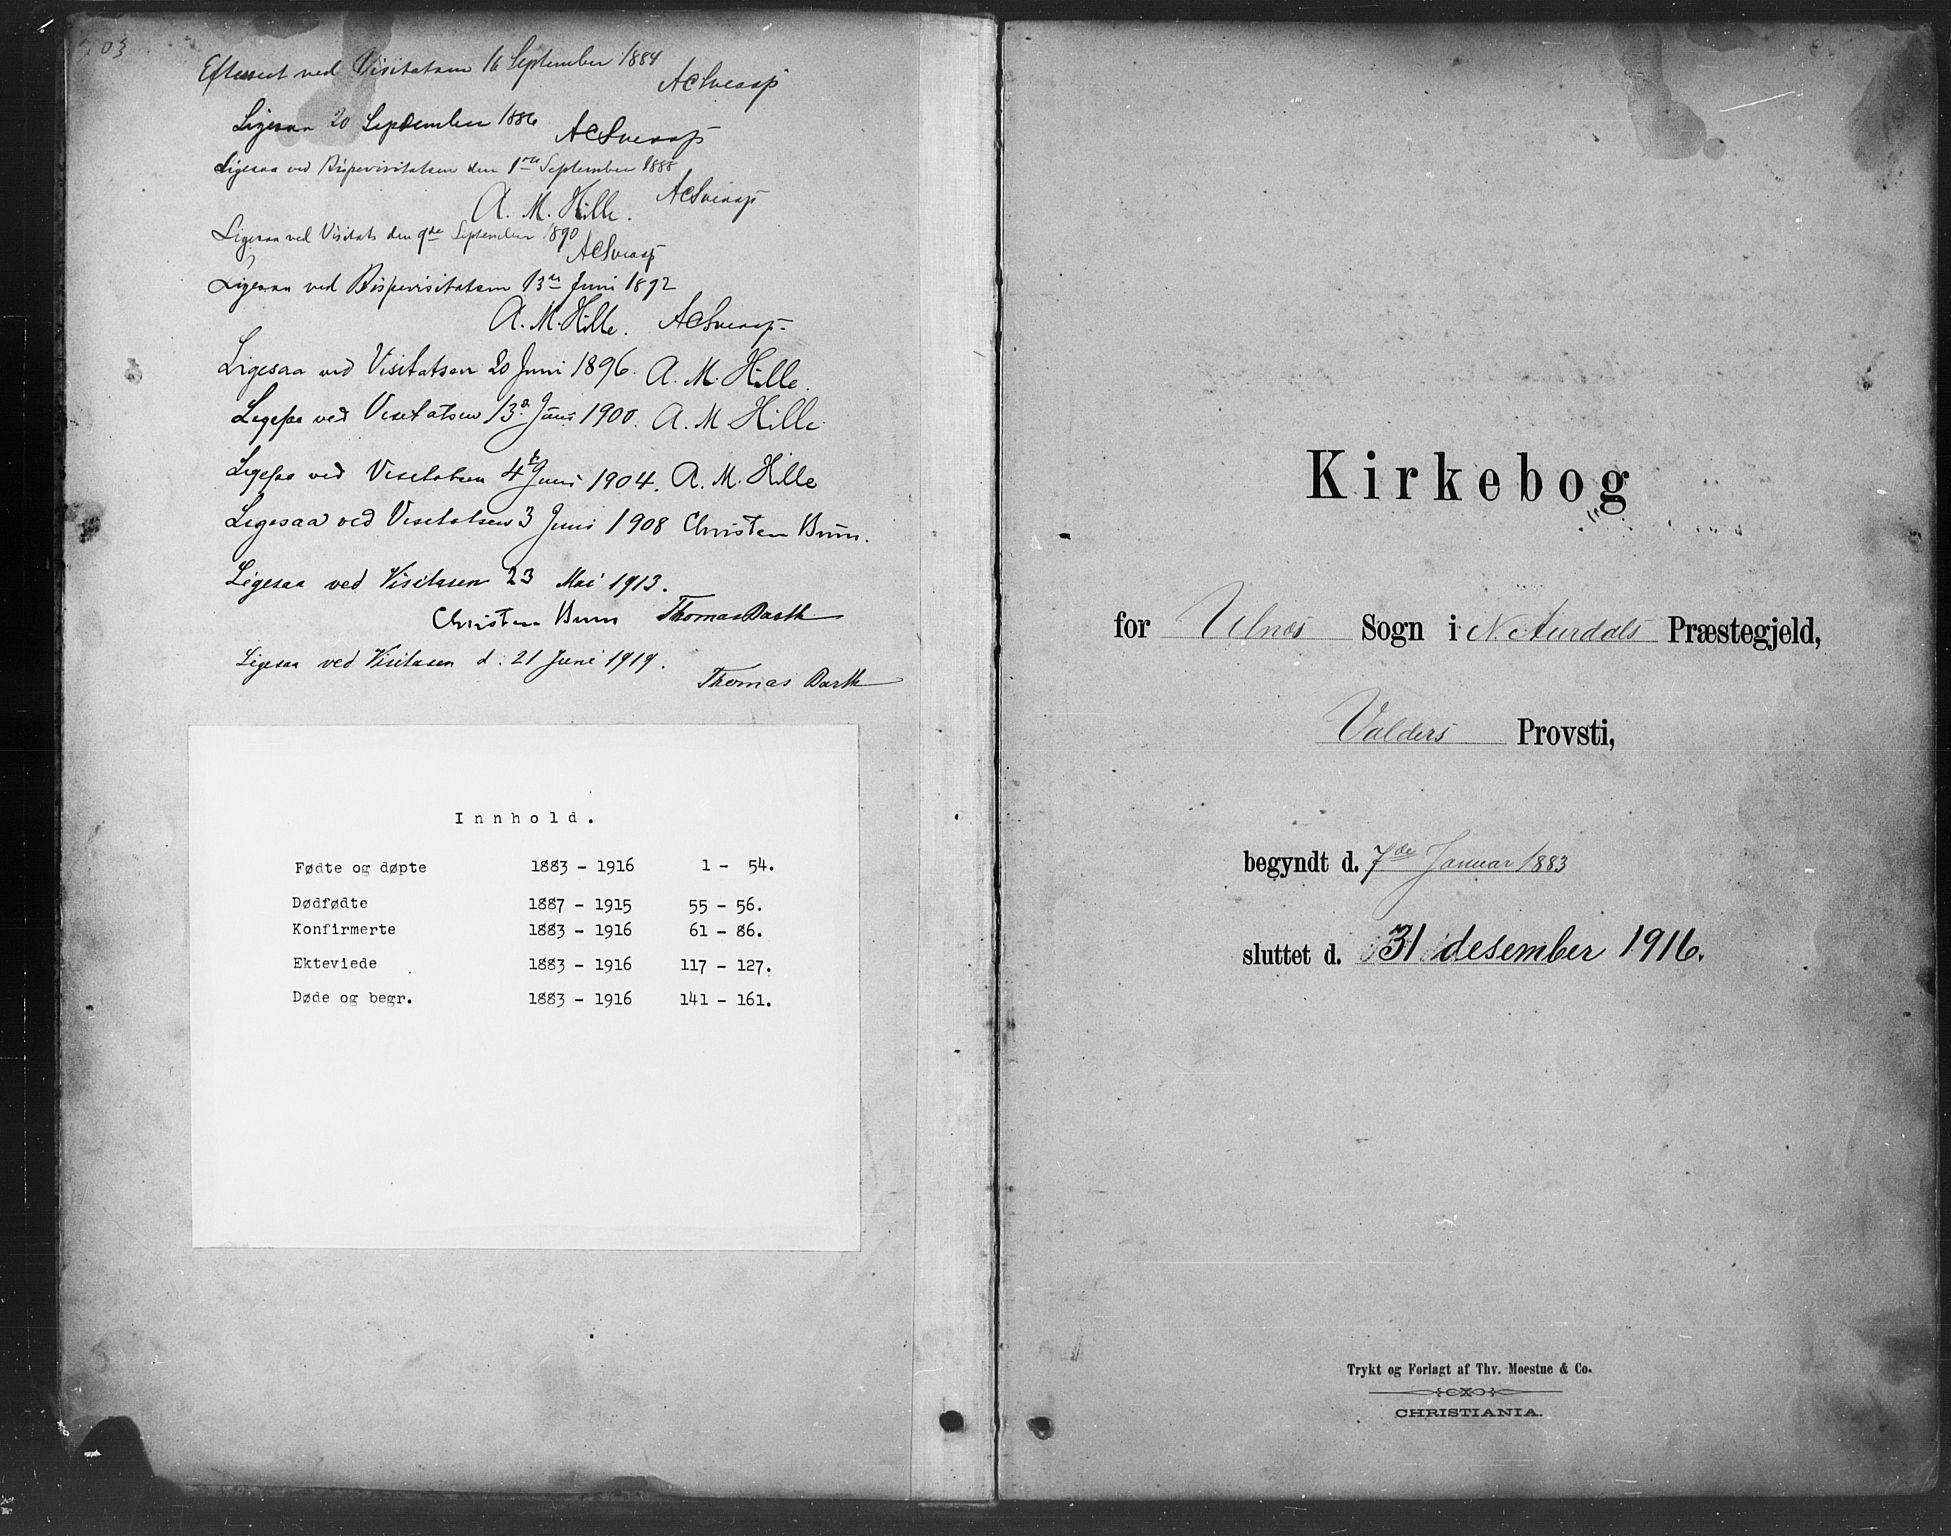 703
Efterseet ved Visitatsen 16 September 1884
ACSverap
Ligesaa 20 September 1886
ACSverap
Ligesaa ved Bispevisitatsen den 1ste September 1888
A. M. Hille. ACSverap
Ligesaa ved Visitats den 9de September 1890
ACSverap
Ligesaa ved Bispevisitatsen 13de Juni 1892
A. M. Hille. ACSverap
Ligesaa ved Visitatsen 20 Juni 1896. A. M. Hille.
Ligesaa ved Visitatsen 13de Juni 1900. A. M Hille
Ligesaa ved Visitatsen 4de Juni 1904. A. M. Hille
Ligesaa ved Visitatsen 3 Juni 1908 Christen Brun.
Ligesaa ved Visitasen 23 Mai 1913.
Christen Brun Thomas Barth
Ligesaa ved Visitasen d. 21 Juni 1919.
Thomas Barth
Innhold.
Fødte og døpte 1883 - 1916 1 - 54.
Dødfødte 1887 - 1915 55 - 56.
Konfirmerte 1883 - 1916 61 - 86.
Ekteviede 1883 - 1916 117 - 127.
Døde og begr. 1883 - 1916 141 - 161.
Kirkebog
for Ulnes Sogn i N. Aurdals Præstegjeld,
Valders Provsti,
begyndt d. 7de Januar 1883
sluttet d. 31 desember 1916.
Trykt og Forlagt af Thv. Moestue & Co.
CHRISTIANIA.